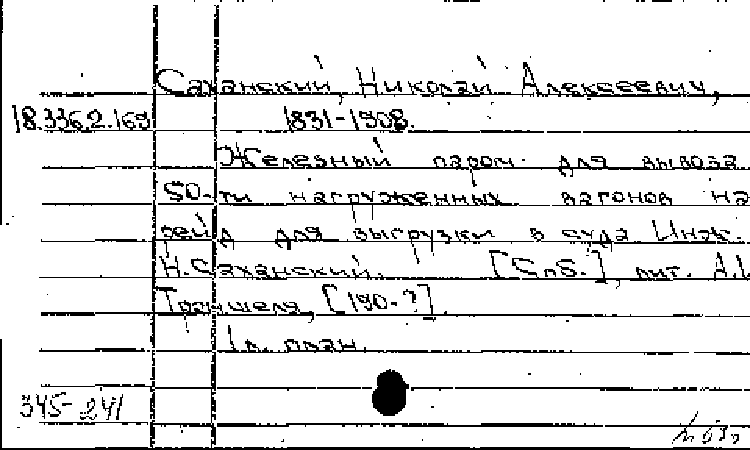 Саханский, Николай Алексеевич,
18.336.2.169 1831-1908.
Железный паром для вывоза
50-ти нагруженных вагонов на
рейд для выгрузки в суда Инж.
Н. Саханский. [Спб.], лит.
Траншеля, [190-?].
1 л. план.
345-241